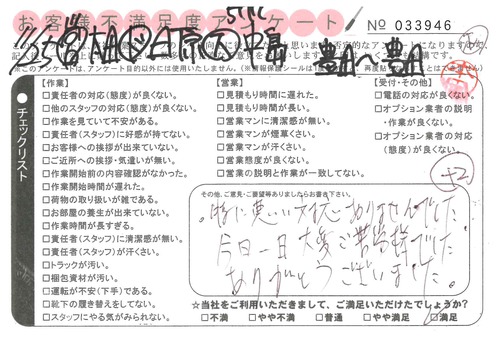 お客様不満足度アンケート
No 033946
豊A〜豊A
チェックリスト
【作業】
□責任者の対応(態度)が良くない。
□他のスタッフの対応(態度)が良くない。
□作業を見ていて不安がある。
□責任者(スタッフ)に好感が持てない。
□お客様への挨拶が出来ていない。
□ご近所への挨拶・気遣いが無い。
□作業開始前の内容確認がなかった。
□作業開始時間が遅れた。
□荷物の取り扱いが雑である。
□お部屋の養生が出来ていない。
□作業時間が長すぎる。
□責任者(スタッフ)に清潔感が無い。
□責任者(スタッフ)が汗くさい。
□トラックが汚い。
□梱包資材が汚い。
□運転が不安(下手)である。
□靴下の履き替えをしてない。
□スタッフにやる気がみられない。
【営業】
□見積り時間に遅れた。
□見積り時間が長い。
□営業マンに清潔感が無い。
□営業マンが煙草くさい。
□営業マンが汗くさい。
□営業態度が良くない。
□営業の説明と作業が一致してない。
【受付・その他】
□電話の対応が良くない。
□オプション業者の説明
・作業が良くない。
□オプション業者の対応
(態度)が良くない。
その他、ご意見・ご要望等ありましたらお書き下さい。
特に悪い対応ありませんでした。
今日一日大変ご苦労様でした
ありがとうございました。
☆当社をご利用いただきまして、ご満足いただけたでしょうか?
□不満 □やや不満 □普通 □やや満足 □満足